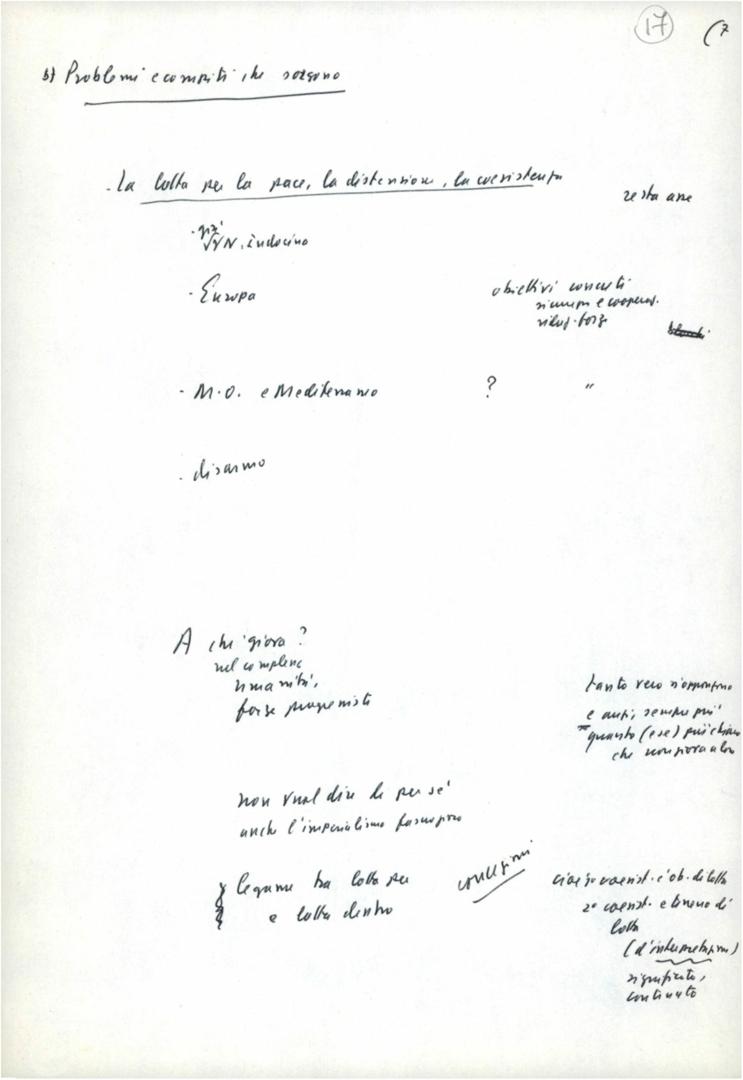 17
(7
b) Problemi e compiti che sorgono
- La lotta per la pace, la distensione, la coesistenza
resta ane
più
VN, Indocina
- Europa
obiettivi concreti
sicurezza e cooperaz.
- M.O. e Mediterraneo ? "
- disarmo
A chi giova?
nel complesso
umanità,
forze progressiste
tanto vero s'oppongono
e anzi, sempre più
quanto (ese) più chiaro
che non giova a loro
non vuol dire di per sé
anche l'imperialismo
legame tra lotta per
e lotta dentro
condizioni
cioè 1º coesist. è ob. di lotta
2º coesist. è terreno di
lotta
(d'interpretazione)
significato,
contenuto